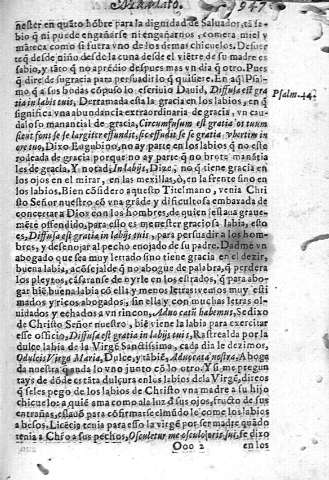 nester en quãto hõbre para la dignidad de Saluador, tã sa-
bio q̃ ni puede engañarse ni engañarnos, comera miel y
mãteca como si fuera vno de los demas chicuelos. Desuer
te q̃ desde niño desde la cuna desde el viẽtre de su madre es
sabio, y tãto q̃ no aprẽdio despues mas vn dia q̃ otro. Pues
q̃ dire de su gracia para persuadir lo q̃ quisiere. En aq̃l Psal-
mo q̃ a sus bodas cõpuso lo escriuio Dauid, Diffusa est gra
tia in labijs tuis, Derramada esta la gracia en los labios, en q̃
significa vna abundancia extraordinaria de gracia, vn cau-
daloso manantial de gracia, Circumfusum est gratia os tuum
sicut fons se se largiter effundit, sic effudit se se gratia vbertim in
ore tuo, Dixo Eugubino, no ay parte en los labios q̃ no este
rodeada de gracia porque no ay parte q̃ no brote manãtia
les de gracia. Y notad, In labijs, Dize, no q̃ tiene gracia en
los ojos en el mirar, en las mexillas, ò, en la frente sino en
los labios. Bien cõsidero aquesto Titelmano, venia Chri
sto Señor nuestro cõ vna grãde y dificultosa embaxada de
concertar a Dios con los hombres, de quien estaua graue-
mẽte offendido, para esso es menester graciosa labia, esso
es, Diffusa est gratia in labijs tuis, para persuadir a los hom-
bres, y desenojar al pecho enojado de su padre. Dadme vn
abogado que sea muy letrado sino tiene gracia en el dezir,
buena labia, acõsejalde q̃ no abogue de palabra, q̃ perdera
los pleytos, cãsaranse de oyrle en los estrados, q̃ para abo-
gar biẽ, buena labia cõ ella y menos letras vemos muy esti
mados y ricos abogados, sin ella y con muchas letras ol-
uidados y echados a vn rincon, Aduocatũ habemus, Se dixo
de Christo Señor nuestro, biẽ viene la labia para exercitar
esse officio, Diffusa est gratia in labijs tuis, Rastrealda por la
dulce labia de la Virgẽ Sanctissima, cada dia le dezimos,
O dulcis Virgo Maria, Dulce, y tãbiẽ, Aduocata nostra, Aboga
da nuestra, anda lo vno junto cõ lo otro. Y si me pregun
tays de dõde es tãta dulçura en los labios de la Virgẽ, direos
q̃ se les pego de los labios de Christo vna madre a su hijo
chicuelo: a quiẽ ama como a la luz d̃ sus ojos, fructo de sus
entrañas, estaua para cõfirmarse el mũdo le come los labios
a besos. Licẽcia tenia para esso la virgẽ por ser madre quãdo
tenia a Chr̃o a sus pechos, Osculetur me osculo oris sui, se dixo
Ooo 2
en los
947
Psalm. 44.